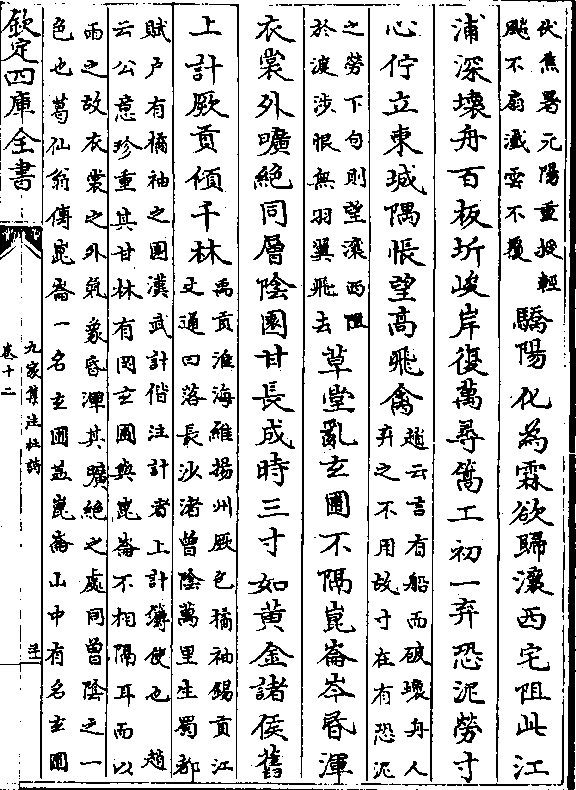 伏焦暑元陽重授輕
飈不扇瀸雲不覆
驕陽化為霖欲歸瀼西宅阻此江
浦深壊舟百板坼峻岸復萬尋篙工初一弃恐泥勞寸
心佇立東城隅悵望高飛禽
趙云言有船而破壊舟人
弃之不用故寸在有恐泥
之勞下句則望瀼西阻
於渡涉恨無羽翼飛去
草堂亂玄圃不隔崑崙岑昏渾
衣裳外曠絶同層陰園甘長成時三寸如黄金諸侯舊
上計厥貢傾千林
禹貢淮海維揚州厥包橘柚錫貢江
文通曰落長沙渚曾陰萬里生蜀都
賦户有橘柚之園漢武計偕注計者上計簿使也 趙
云公意珍重其甘林有同玄圃與崑崙不相隔耳而以
雨之故衣裳之外氣象昏渾其曠絶之處同曾陰之一
色也葛仙翁傳崑崙一名玄圃葢崑崙山中有名玄圃
欽定四庫全書
九家集注杜詩
卷十二